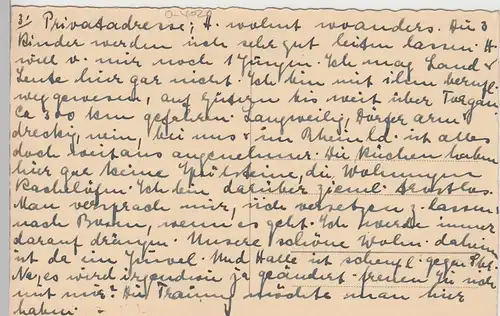 3/ Privatadresse; H. wohnt woanders. Die 3
Kinder werden sich sehr gut leiten lassen. H.
will v. mir noch 1 Jungen. Ich mag Land &
Leute hier gar nicht. Ich bin mit ihm berufl.
weggewesen, auf Gütern bis weit über Torgau.
Ca 300 km gefahren. Langweilig, Dörfer arm &
dreckig, nein, bei uns & im Rheinld. ist alles
doch weitaus angenehmer. Die Küchen haben
hier gar keine Spülsteine, die Wohnungen
Kachelöfen. Ich bin darüber zieml. trostlos.
Man versprach mir, sich versetzen z. lassen
nach Bonn, wenn es geht. Ich werde immer
darauf drängen. Unsere schöne Wohn. daheim
ist da ein Juwel. Und Halle ist scheußl. gegen
Na, es wird irgendwie ja geändert. freuen Sie sich
mit mir? Die Trauung möchte man hier
haben. -